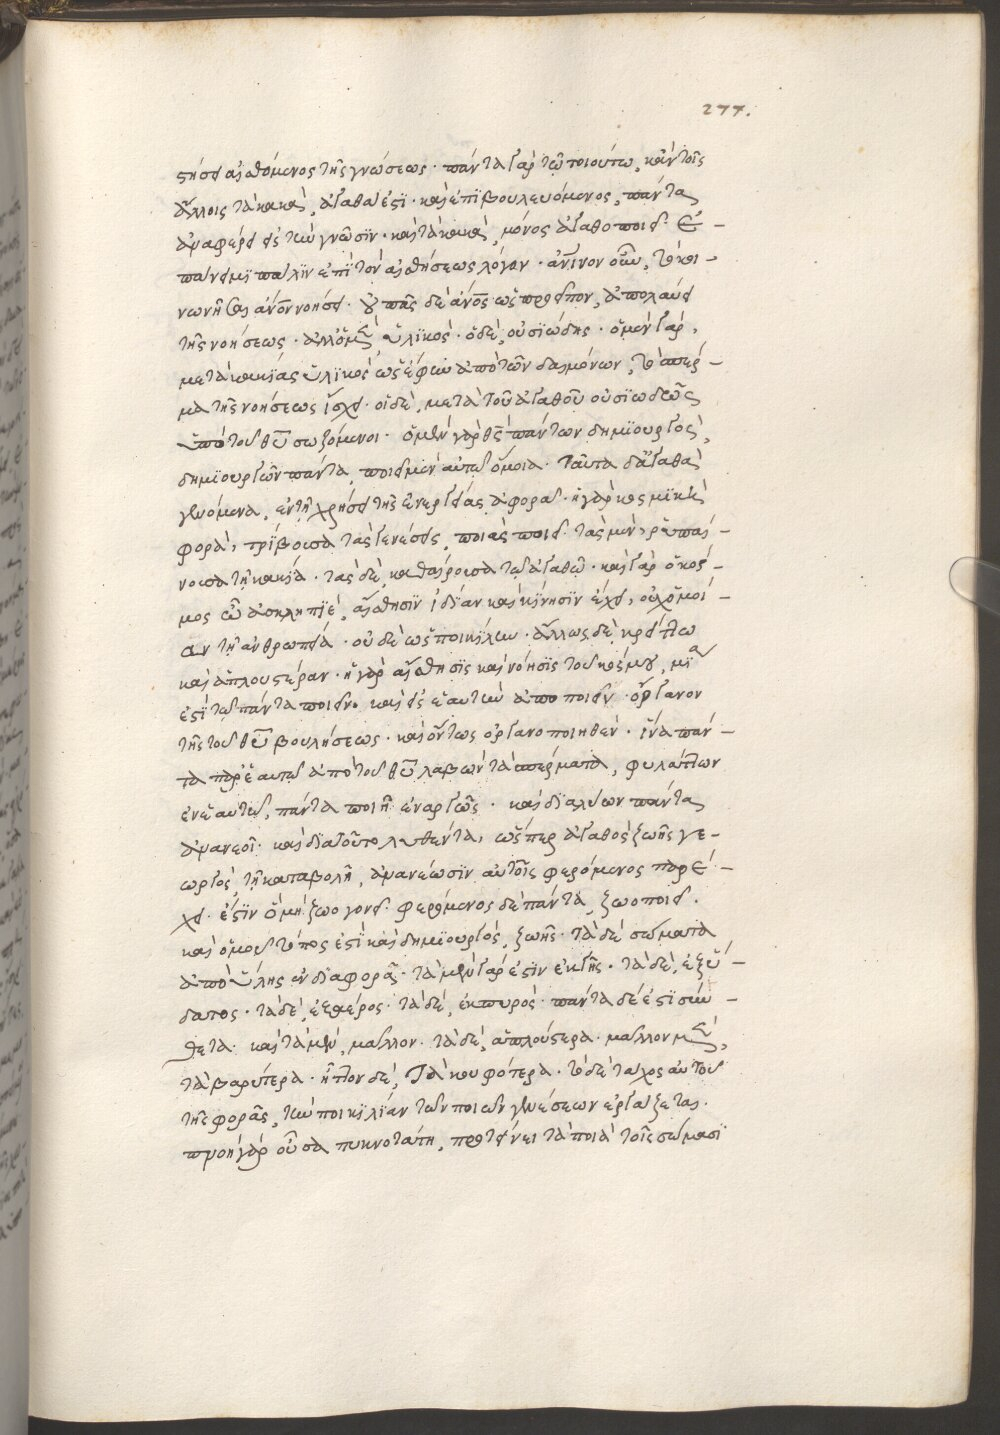 277.
στήσει αἰσθόμενος τῆς γνώσεως · πάντα γὰρ τῷ τοιούτῳ, κἂν τοῖς
ἄλλοις τὰ κακὰ, ἀγαθά ἐστι · καὶ ἐπιβουλευόμενος, πάντα
ἀναφέρει εἰς τὴν γνῶσιν · καὶ τὰ κακὰ, μόνος ἀγαθοποιεῖ · ἐ-
πάνειμι πάλιν ἐπὶ τὸν αἰσθήσεως λόγον · ἀν´ινον οὖν, τὸ κοι-
νωνῆσαι ἀνο̅ν νοήσει · οὐ πᾶς δὲ ἄνο̅ς ὡς προεῖπον, ἀπολαύει
τῆς νοήσεως · ἀλλ' ὁ μὲν, ὑλικὸς · ὁ δὲ, οὐσιώδης · ὁ μὲν γὰρ,
μετὰ κακίας ὑλικὸς ὡς ἔφην ἀπὸ τῶν δαιμόνων, τὸ σπέρ-
μα τῆς νοήσεως ἴσχει · οἱ δὲ, μετὰ τοῦ ἀγαθοῦ οὐσιωδῶς
ὑπὸ τοῦ θυ̅ σωζόμενοι · ὁ μὲν γὰρ θς̅ πάντων δημιουργὸς,
δημιουργῶν πάντα, ποιεῖ μὲν αὑτῷ ὅμοια · ταῦτα δ' ἀγαθὰ
γενόμενα, ἐν τῇ χρήσει τῆς ἐνεργείας ἄφορα · ἡ γὰρ κοσμικὴ
φορὰ, τρίβουσα τὰς γενέσεις, ποιὰς ποιεῖ · τὰς μὲν, ῥυπαί-
νουσα τῇ κακίᾳ · τὰς δὲ, καθαίρουσα τῷ ἀγαθῷ · καὶ γὰρ ὁ κόσ-
μος ὦ ἀσκληπιὲ, αἴσθησιν ἰδίαν καὶ κίνησιν ἔχει, οὐχ ὁμοί-
αν τῇ ἀνθρωπείᾳ · οὐδὲ ὡς ποικίλην · ἄλλως δὲ κρείττω
καὶ ἁπλουστέραν · ἡ γὰρ αἴσθησις καὶ νόησις τοῦ κόσμου, μία
ἐστὶ τῷ πάντα ποιεῖν · καὶ εἰς ἑαυτὴν ἀποποιεῖν · ὄργανον
τῆς τοῦ θυ̅ βουλήσεως · καὶ οὕτως ὀργανοποιηθὲν · ἵνα πάν-
τα παρ' ἑαυτῷ ἀπὸ τοῦ θυ̅ λαβὼν τὰ σπέρματα, φυλάττων
ἐν ἑαυτῷ, πάντα ποιῇ ἐναργῶς · καὶ διαλύων πάντα
ἀνανεοῖ · καὶ διὰ τοῦτο λυθέντα, ὥσπερ ἀγαθὸς ζωῆς γε-
ωργὸς, τῇ καταβολῇ, ἀνανέωσιν αὐτοῖς φερόμενος παρέ-
χει · ἔστιν ὃ μὴ ζωογονεῖ · φερόμενος δὲ πάντα, ζωοποιεῖ ·
καὶ ὁμοῦ τόπος ἐστὶ καὶ δημιουργὸς, ζωῆς · τὰ δὲ σώματα
ἀπὸ ὕλης ἐν διαφορᾷ · τὰ μὲν γάρ ἐστιν ἐκ γῆς · τὰ δὲ, ἐξ ὕ-
δατος · τὰ δὲ, ἐξ ἀέρος · τὰ δὲ, ἐκ πυρὸς · πάντα δέ ἐστι σύν-
θετα · καὶ τὰ μὲν, μᾶλλον · τὰ δὲ, ἁπλούστερα · μᾶλλον μὲν,
τὰ βαρύτερα · ἧττον δὲ, τὰ κουφότερα · τὸ δὲ τάχος αὐτοῦ
τῆς φορᾶς, τὴν ποικιλίαν τῶν ποιῶν γενέσεων ἐργάζεται ·
πνοὴ γὰρ οὖσα πυκνοτάτη, προτείνει τὰ ποιὰ τοῖς σώμασι